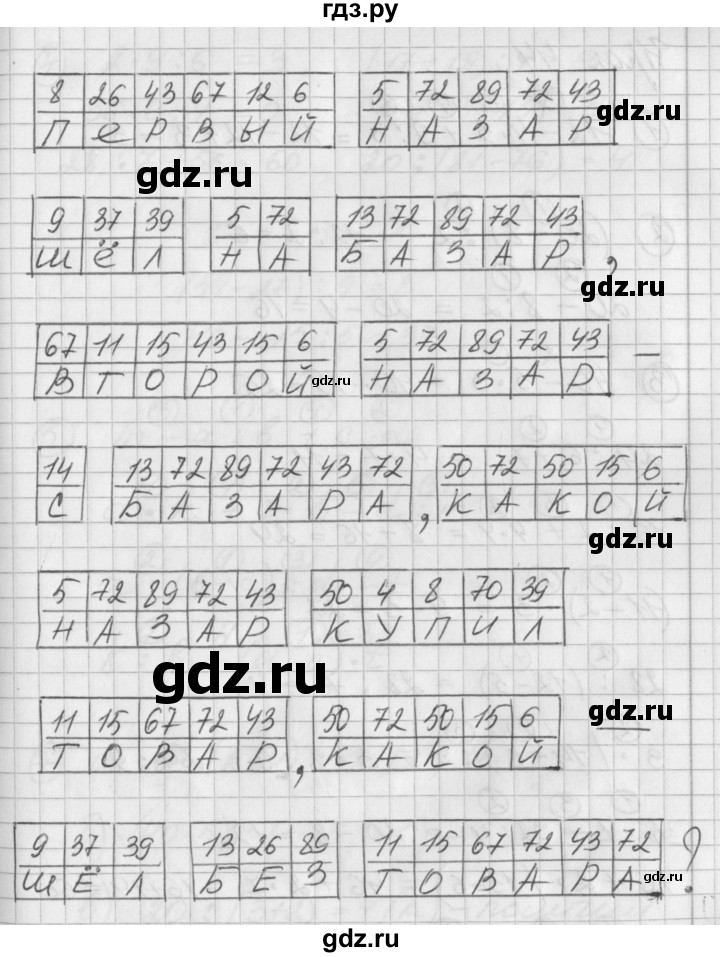 гдз.ру
8 26 43 67 12 6 5 72 89 72 43
П е Р В Ы Й Н А З А Р
gdz.ru
gdz.ru
9 37 39 5 72 13 72 89 72 43
Ш Ё Л Н А Б А З А Р ,
gdz.ru
67 11 15 43 15 6 5 72 89 72 43
В Т О Р О Й Н А З А Р —
gdz.ru
14 13 72 89 72 43 72 50 72 50 15 6
С Б А З А Р А , К А К О Й
gdz.ru
5 72 89 72 43 50 4 8 70 39
Н А З А Р К У П И Л
gdz.ru
11 15 67 72 43 50 72 50 15 6 —
Т О В А Р , К А К О Й
gdz.ru
9 37 39 13 26 89 11 15 67 72 43 72
Ш Ё Л Б Е З Т О В А Р А ?
gdz.ru
gdz.ru